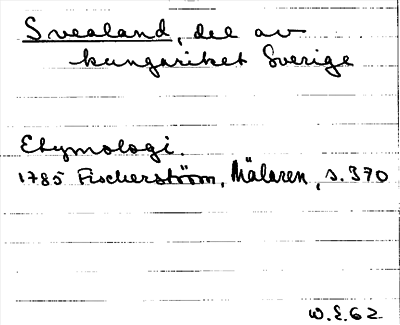 Svealand, del av
kungariket Sverige
Etymologi.
1785 Fischerström, Mälaren, s. 370
W.E. 62